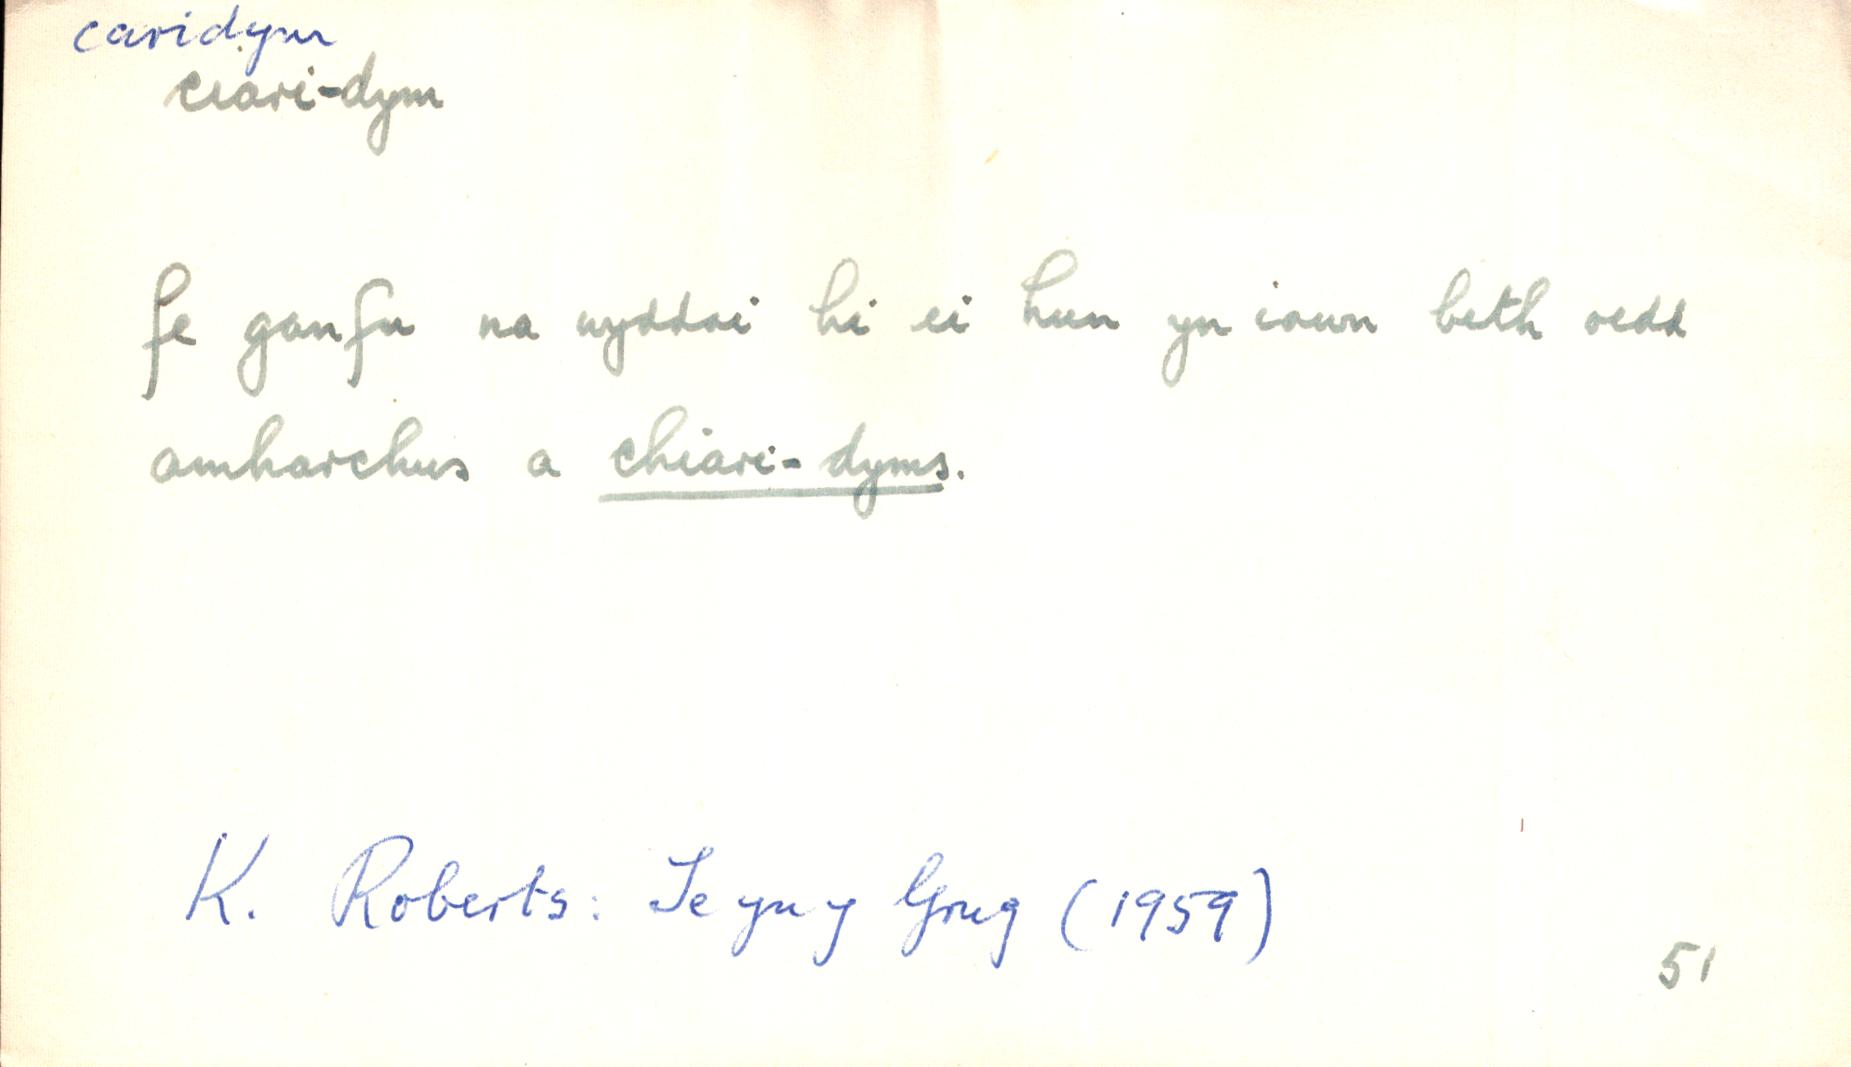 caridym
ciari-dym
fe ganfu na wyddai hi ei hun yn iawn beth oedd
amharchus a chiari-dyms.
K. Roberts: Te yn y Grug (1959)
51